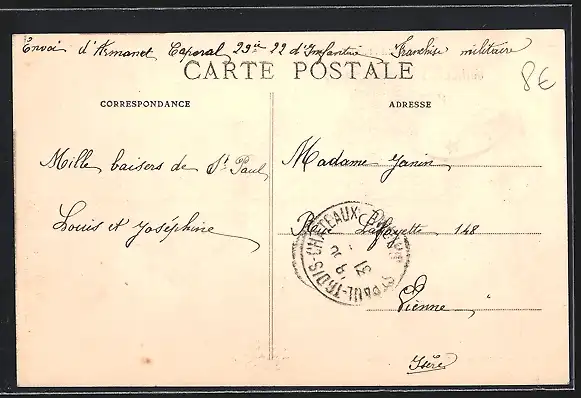 Envoi d'Armanet Caporal 29ie 22 d'Infanterie Franchise militaire
8€
CARTE POSTALE
CORRESPONDANCE
ADRESSE
Mille baisers de St Paul
Louis et Joséphine
Madame Janin
Rue Lafayette 148
Vienne
Isère
ST PAUL-TROIS-CHATEAUX